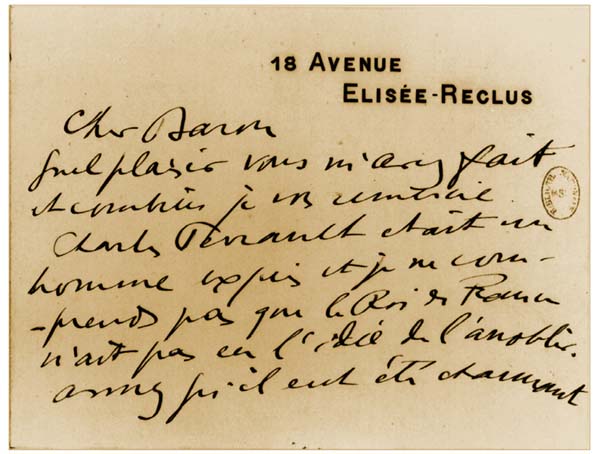 18 AVENUE
ELISÉE-RECLUS
Cher Baron
quel plaisir vous m'avez fait
et combien je vous remercie
Charles Perrault était un
homme exquis et je ne com-
-prends pas que le Roi de France
n'ait pas eu l'idée de l'anoblir.
avouez qu'il eut été charmant